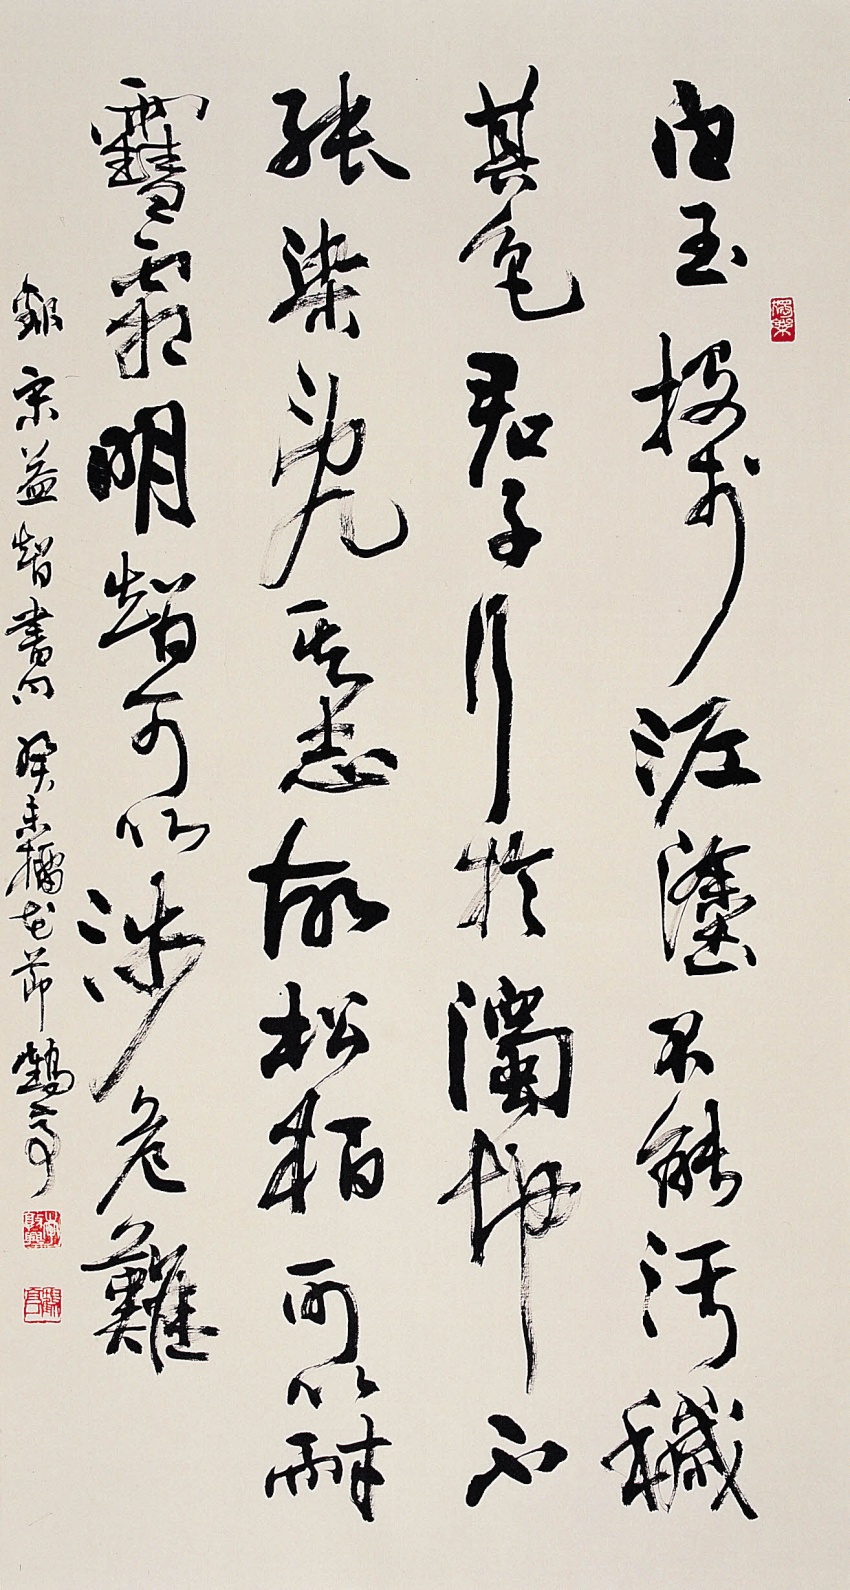 白玉投於泥塗不能污穢
其色君子行於濁地不
能染亂其志故松柏可以耐
雪霜明智可以涉危難
宋益智書內 癸未榴花節 鶴亭